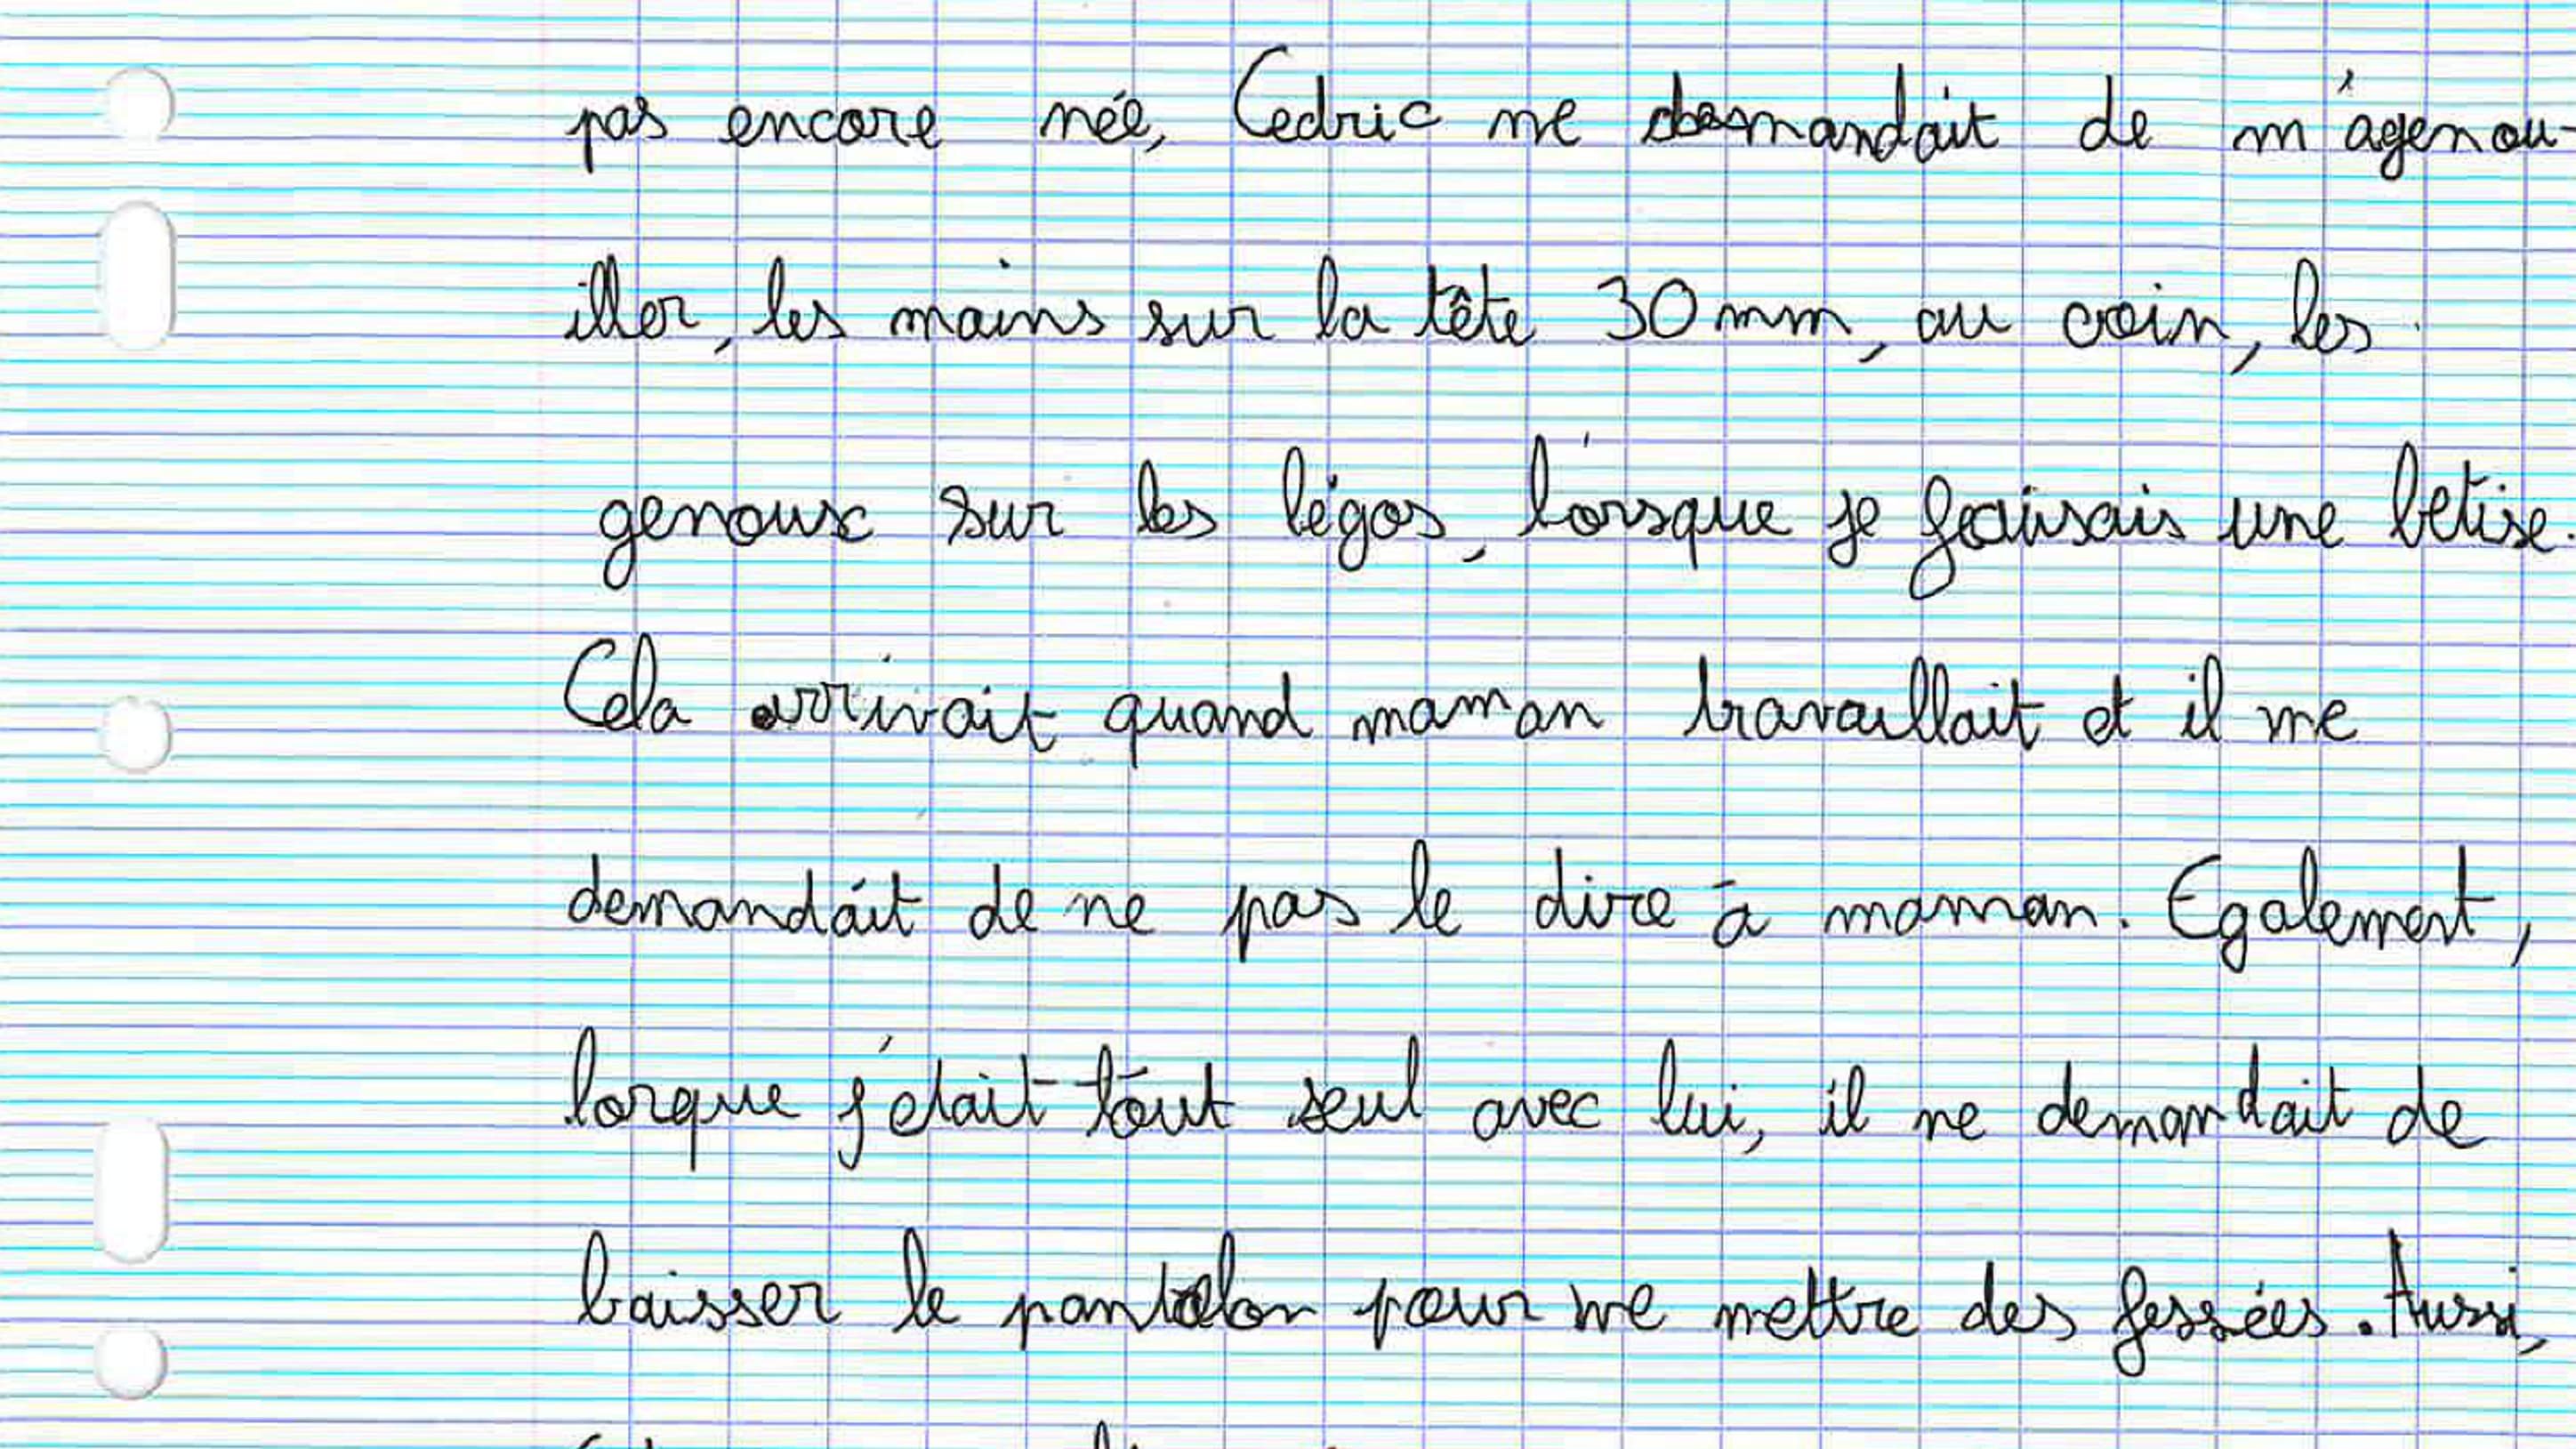 pas encore née, Cedric me demandait de m'agenou-
iller, les mains sur la tête 30 mm, au coin, les
genoux sur les légos, lorsque je faisais une betise.
Cela arrivait quand maman travaillait et il me
demandait de ne pas le dire à maman. Egalement,
lorque j'était tout seul avec lui, il me demandait de
baisser le pantalon pour me mettre des fessées. Aussi,